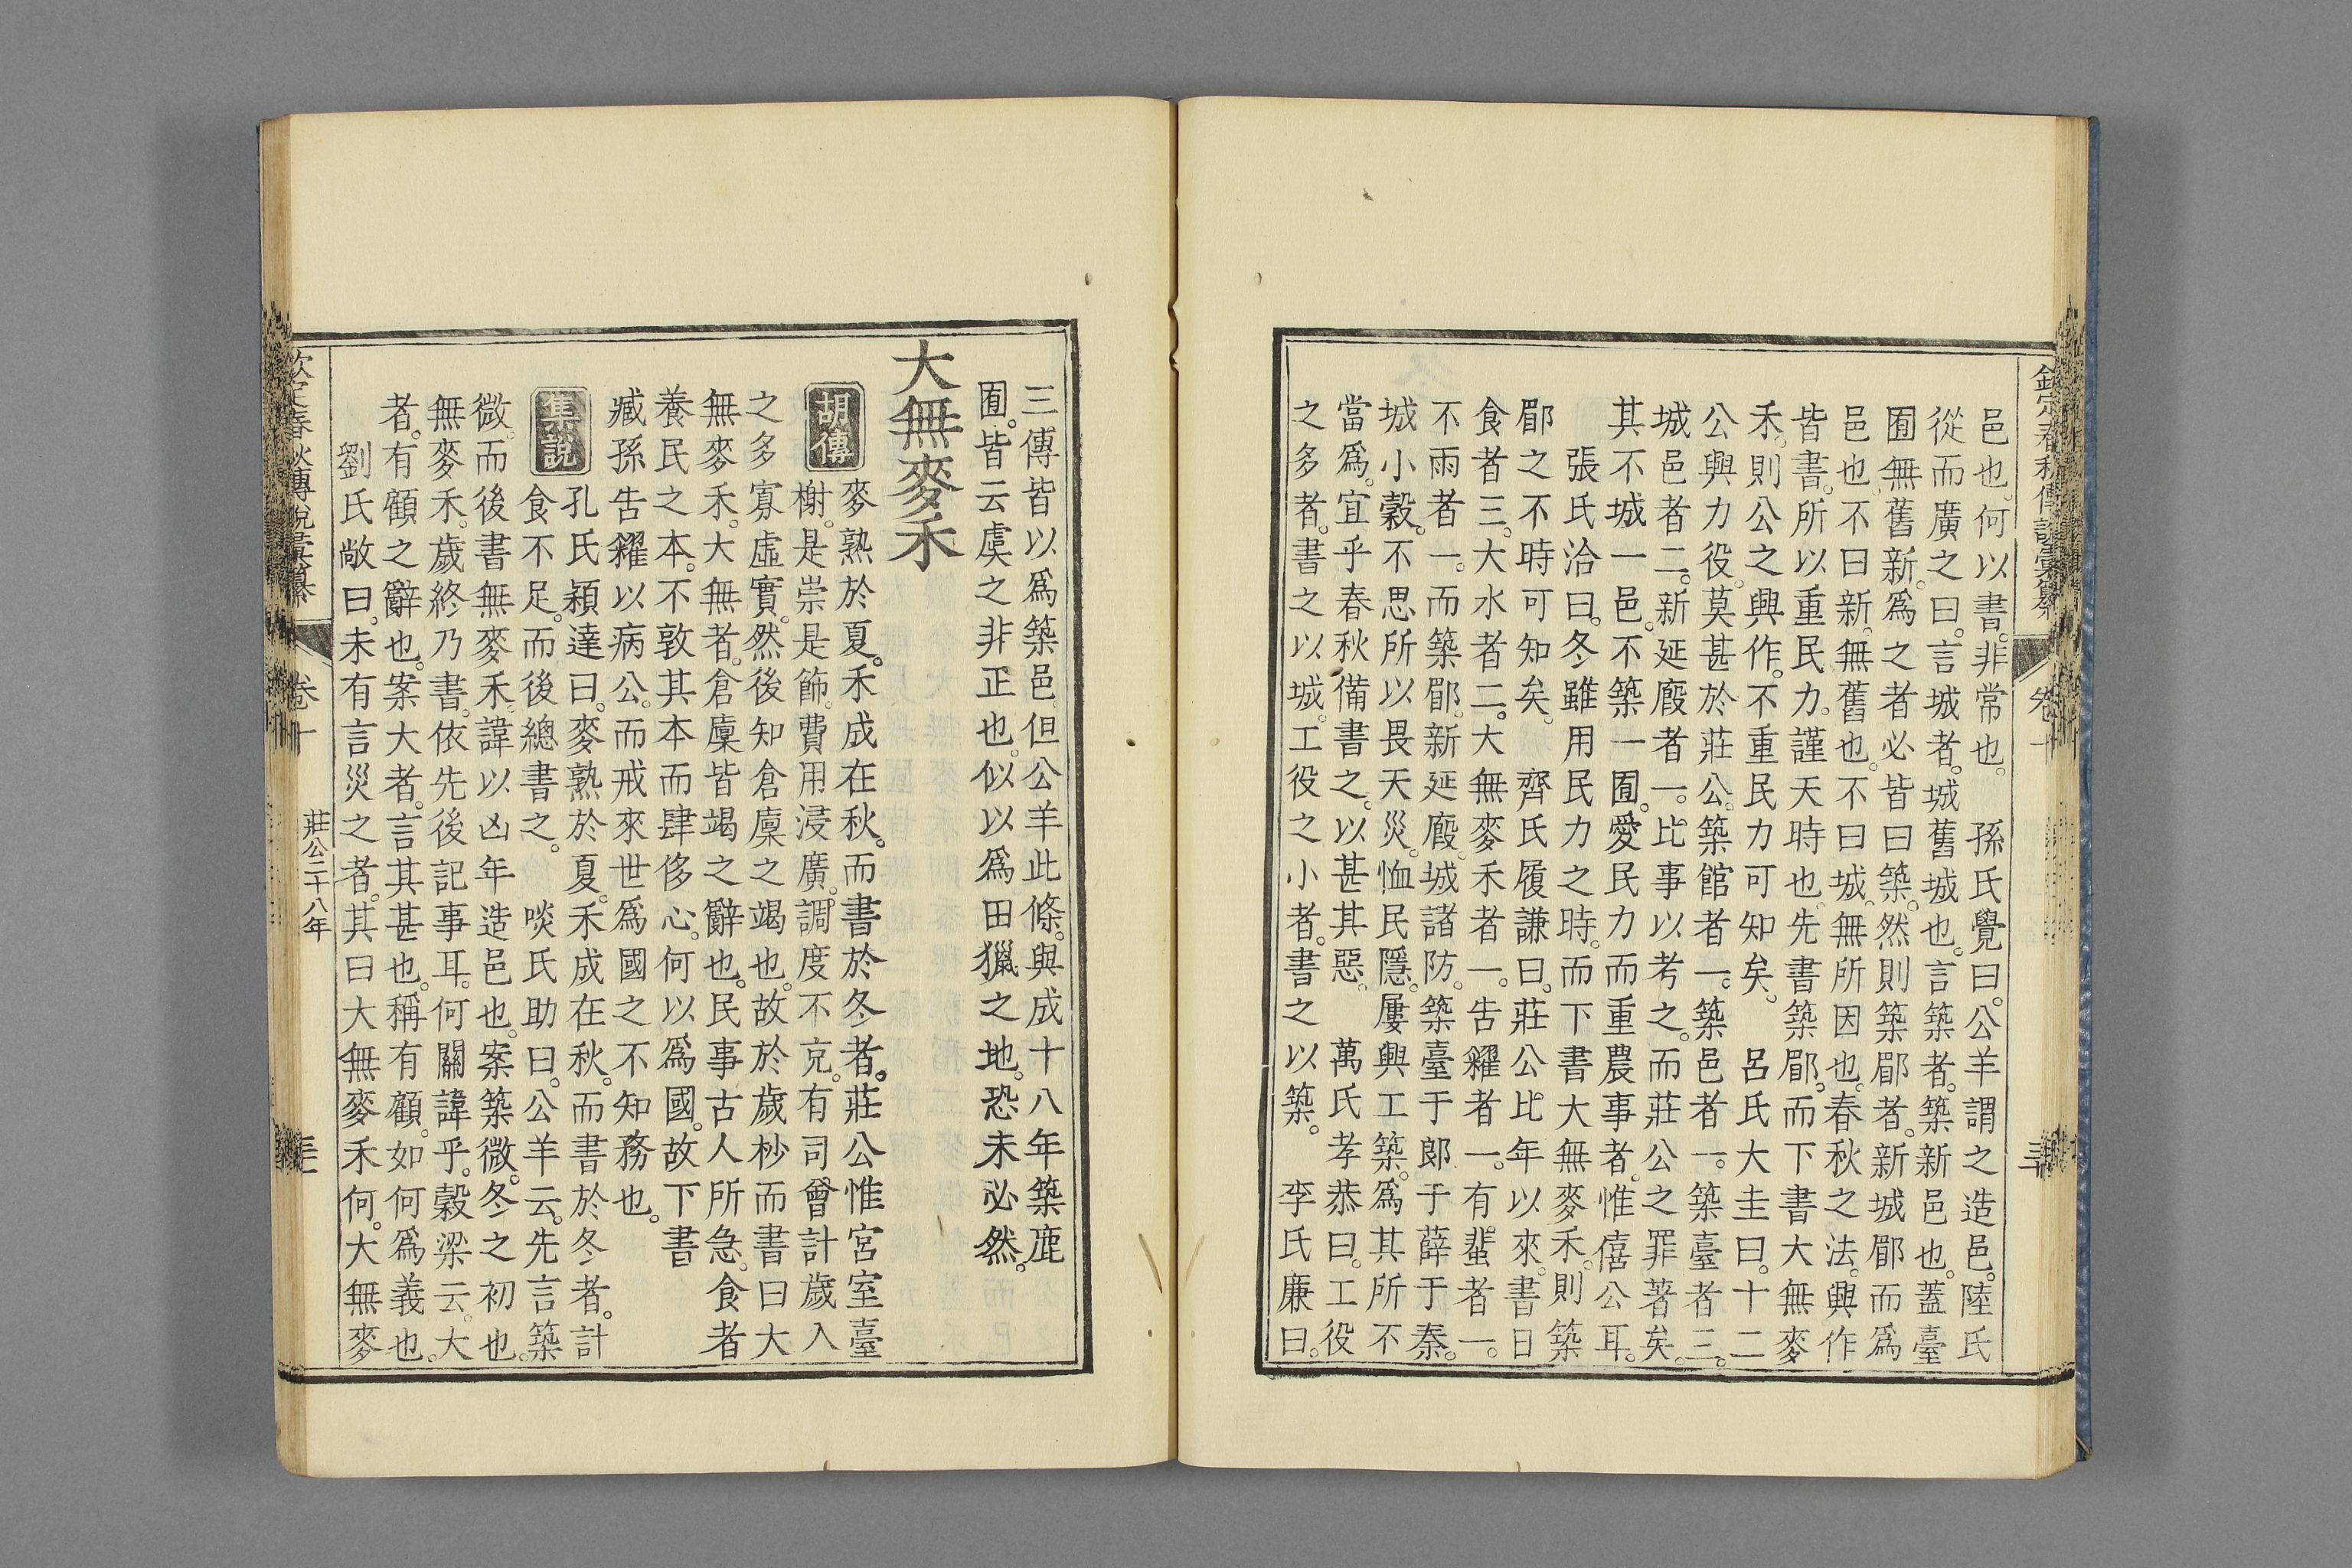 欽定春秋傳說彙纂 卷十
邑也。何以書。非常也。 孫氏覺曰。公羊謂之造邑。陸氏
從而廣之曰。言城者。城舊城也。言築者。築新邑也。蓋臺
囿無舊新。爲之者必皆曰築。然則築郿者。新城郿而爲
邑也。不曰新。無舊也。不曰城。無所因也。春秋之法。興作
皆書。所以重民力。謹天時也。先書築郿。而下書大無麥
禾。則公之興作。不重民力可知矣。 呂氏大圭曰。十二
公興力役。莫甚於莊公。築館者一。築邑者一。築臺者三。
城邑者二。新延廏者一。比事以考之。而莊公之罪著矣。
其不城一邑。不築一囿。愛民力而重農事者。惟僖公耳。
張氏洽曰。冬雖用民力之時。而下書大無麥禾。則築
郿之不時可知矣。 齊氏履謙曰。莊公比年以來。書日
食者三。大水者二。大無麥禾者一。告糴者一。有蜚者一。
不雨者一。而築郿。新延廏。城諸防。築臺于郎于薛于秦。
城小穀。不思所以畏天災。恤民隱。屢興工築。爲其所不
當爲。宜乎春秋備書之。以甚其惡。 萬氏孝恭曰。工役
之多者。書之以城。工役之小者。書之以築。 李氏廉曰。
三傳皆以爲築邑。但公羊此條。與成十八年築鹿
囿。皆云虞之非正也。似以爲田獵之地。恐未必然。
大無麥禾
胡傳 麥熟於夏。禾成在秋。而書於冬者。莊公惟宮室臺
榭。是崇是飾。費用浸廣。調度不克。有司會計歲入
之多寡虛實。然後知倉廩之竭也。故於歲杪而書曰大
無麥禾。大無者。倉廩皆竭之辭也。民事古人所急。食者
養民之本。不敦其本而肆侈心。何以爲國。故下書
臧孫告糴以病公。而戒來世爲國之不知務也。
集說 孔氏穎達曰。麥熟於夏。禾成在秋。而書於冬者。計
食不足。而後總書之。 啖氏助曰。公羊云。先言築
微。而後書無麥禾。諱以凶年造邑也。案築微。冬之初也。
無麥禾。歲終乃書。依先後記事耳。何關諱乎。穀梁云。大
者。有顧之辭也。案大者。言其甚也。稱有顧。如何爲義也。
劉氏敞曰。未有言災之者。其曰大無麥禾何。大無麥
欽定春秋傳說彙纂 卷十 莊公二十八年